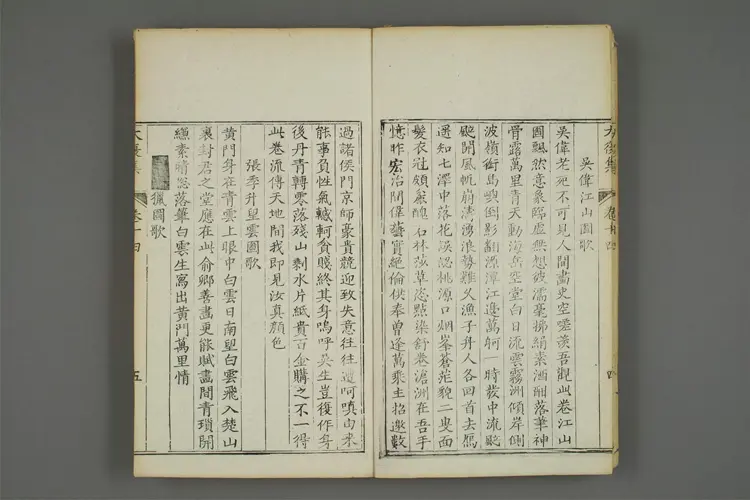 大復集 卷十四 四
吳偉江山圖歌
吳偉老死不可見人間畫史空嗟羨吾觀此卷江山
圖飄然意象臨虛無想彼濡毫拂絹素酒酣落筆神
骨露萬里青天動海岳空堂白日流雲霧洲傾岸側
波嶺銜島嶼倒影翻源潭江邊萬舸一時發中流颭
颭開風帆前濤湧浪勢難久漁子舟人各回首去雁
遙知七澤中落花深認桃源口烟峯蒼茫貌二叟面
髮衣冠頗麤醜石林莎草恣點染舒卷滄洲在吾手
憶昨宏治間偉藝實絕倫供奉曾逢萬乘主招邀數
過諸侯門京師豪貴競迎致失意往往遭呵嗔由來
能事負性氣轗軻貧賤終其身嗚呼吳生豈復作身
後丹青轉零落殘山剩水片紙貴百金購之不一得
此卷流傳天地間我即見汝真顏色
張季升望雲圖歌
黃門身在青雲上眼中白雲日南望白雲飛入楚山
裏封君之堂應在此俞卿善畫更能賦畫間青瑣開
縑素晴窓落筆白雲生寫出黃門萬里情
獵圖歌
大復集 卷十四 五